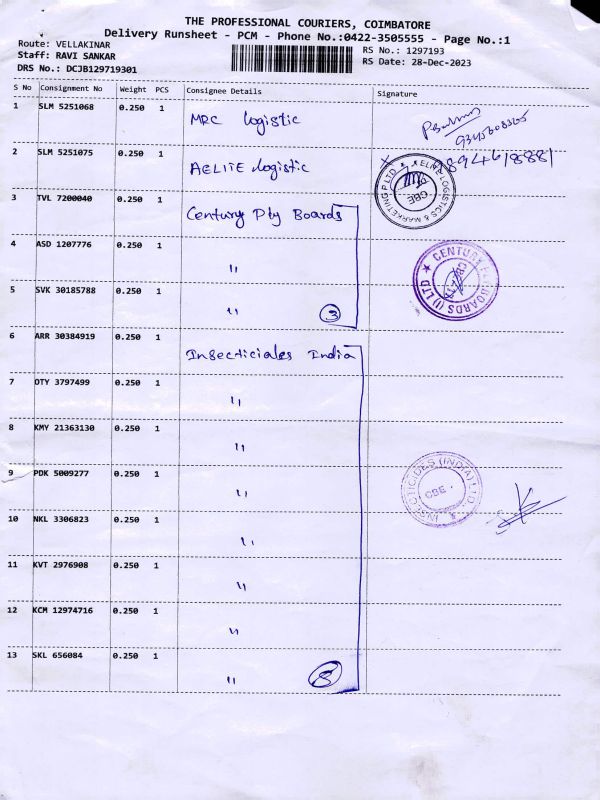 THE PROFESSIONAL COURIERS, COIMBATORE
Delivery Runsheet - PCM - Phone No.:0422-3505555 - Page No.:1
Route: VELLAKINAR
Staff: RAVI SANKAR
DRS No.: DCJB129719301
RS No.: 1297193
RS Date: 28-Dec-2023
S No Consignment No Weight PCS Consignee Details Signature
1 SLM 5251068 0.250 1 MRC logistic
2 SLM 5251075 0.250 1 AELITE logistic 894618881
ELITE LOGISTICS & MARKETING P LTD
CBE
3 TVL 7200040 0.250 1 Century Ply Boards
4 ASD 1207776 0.250 1 "
CENTURY PLYBOARDS (I) LTD
5 SVK 30185788 0.250 1 " 3
6 ARR 30384919 0.250 1 Insecticiales India
7 OTY 3797499 0.250 1 "
8 KMY 21363130 0.250 1 "
9 PDK 5009277 0.250 1 "
INSECTICIDES (INDIA) LTD
CBE
10 NKL 3306823 0.250 1 "
11 KVT 2976908 0.250 1 "
12 KCM 12974716 0.250 1 "
13 SKL 656084 0.250 1 " 8